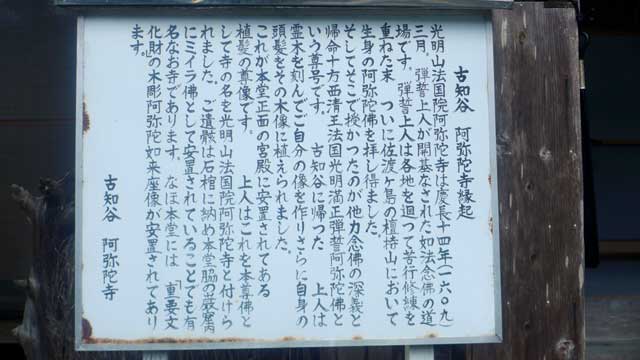 古知谷 阿弥陀寺縁起
光明山法国院阿弥陀寺は慶長十四年(一六〇九)
三月、弾誓上人が開基なされた如法念佛の道
場です。弾誓上人は各地を廻って苦行修練を
重ねた末 ついに佐渡ヶ島の檀特山において
生身の阿弥陀佛を拝し得ました。
そしてそこで授かったのが他力念佛の深義と
帰命十方西清王法国光明満正弾誓阿弥陀佛と
いう尊号です。 古知谷に帰った 上人は
霊木を刻んでご自分の像を作りさらに自身の
頭髪をその木像に植えられました。
これが本堂正面の宮殿に安置されてある
植髪の尊像です。 上人はこれを本尊佛と
して寺の名を光明山法国院阿弥陀寺と付けら
れました。ご遺骸は石棺に納め本堂脇の巌窟
にミイラ佛として安置されていることでも有
名なお寺であります。なほ本堂には「重要文
化財の木彫阿弥陀如来座像が安置されてあり
ます。
古知谷 阿弥陀寺